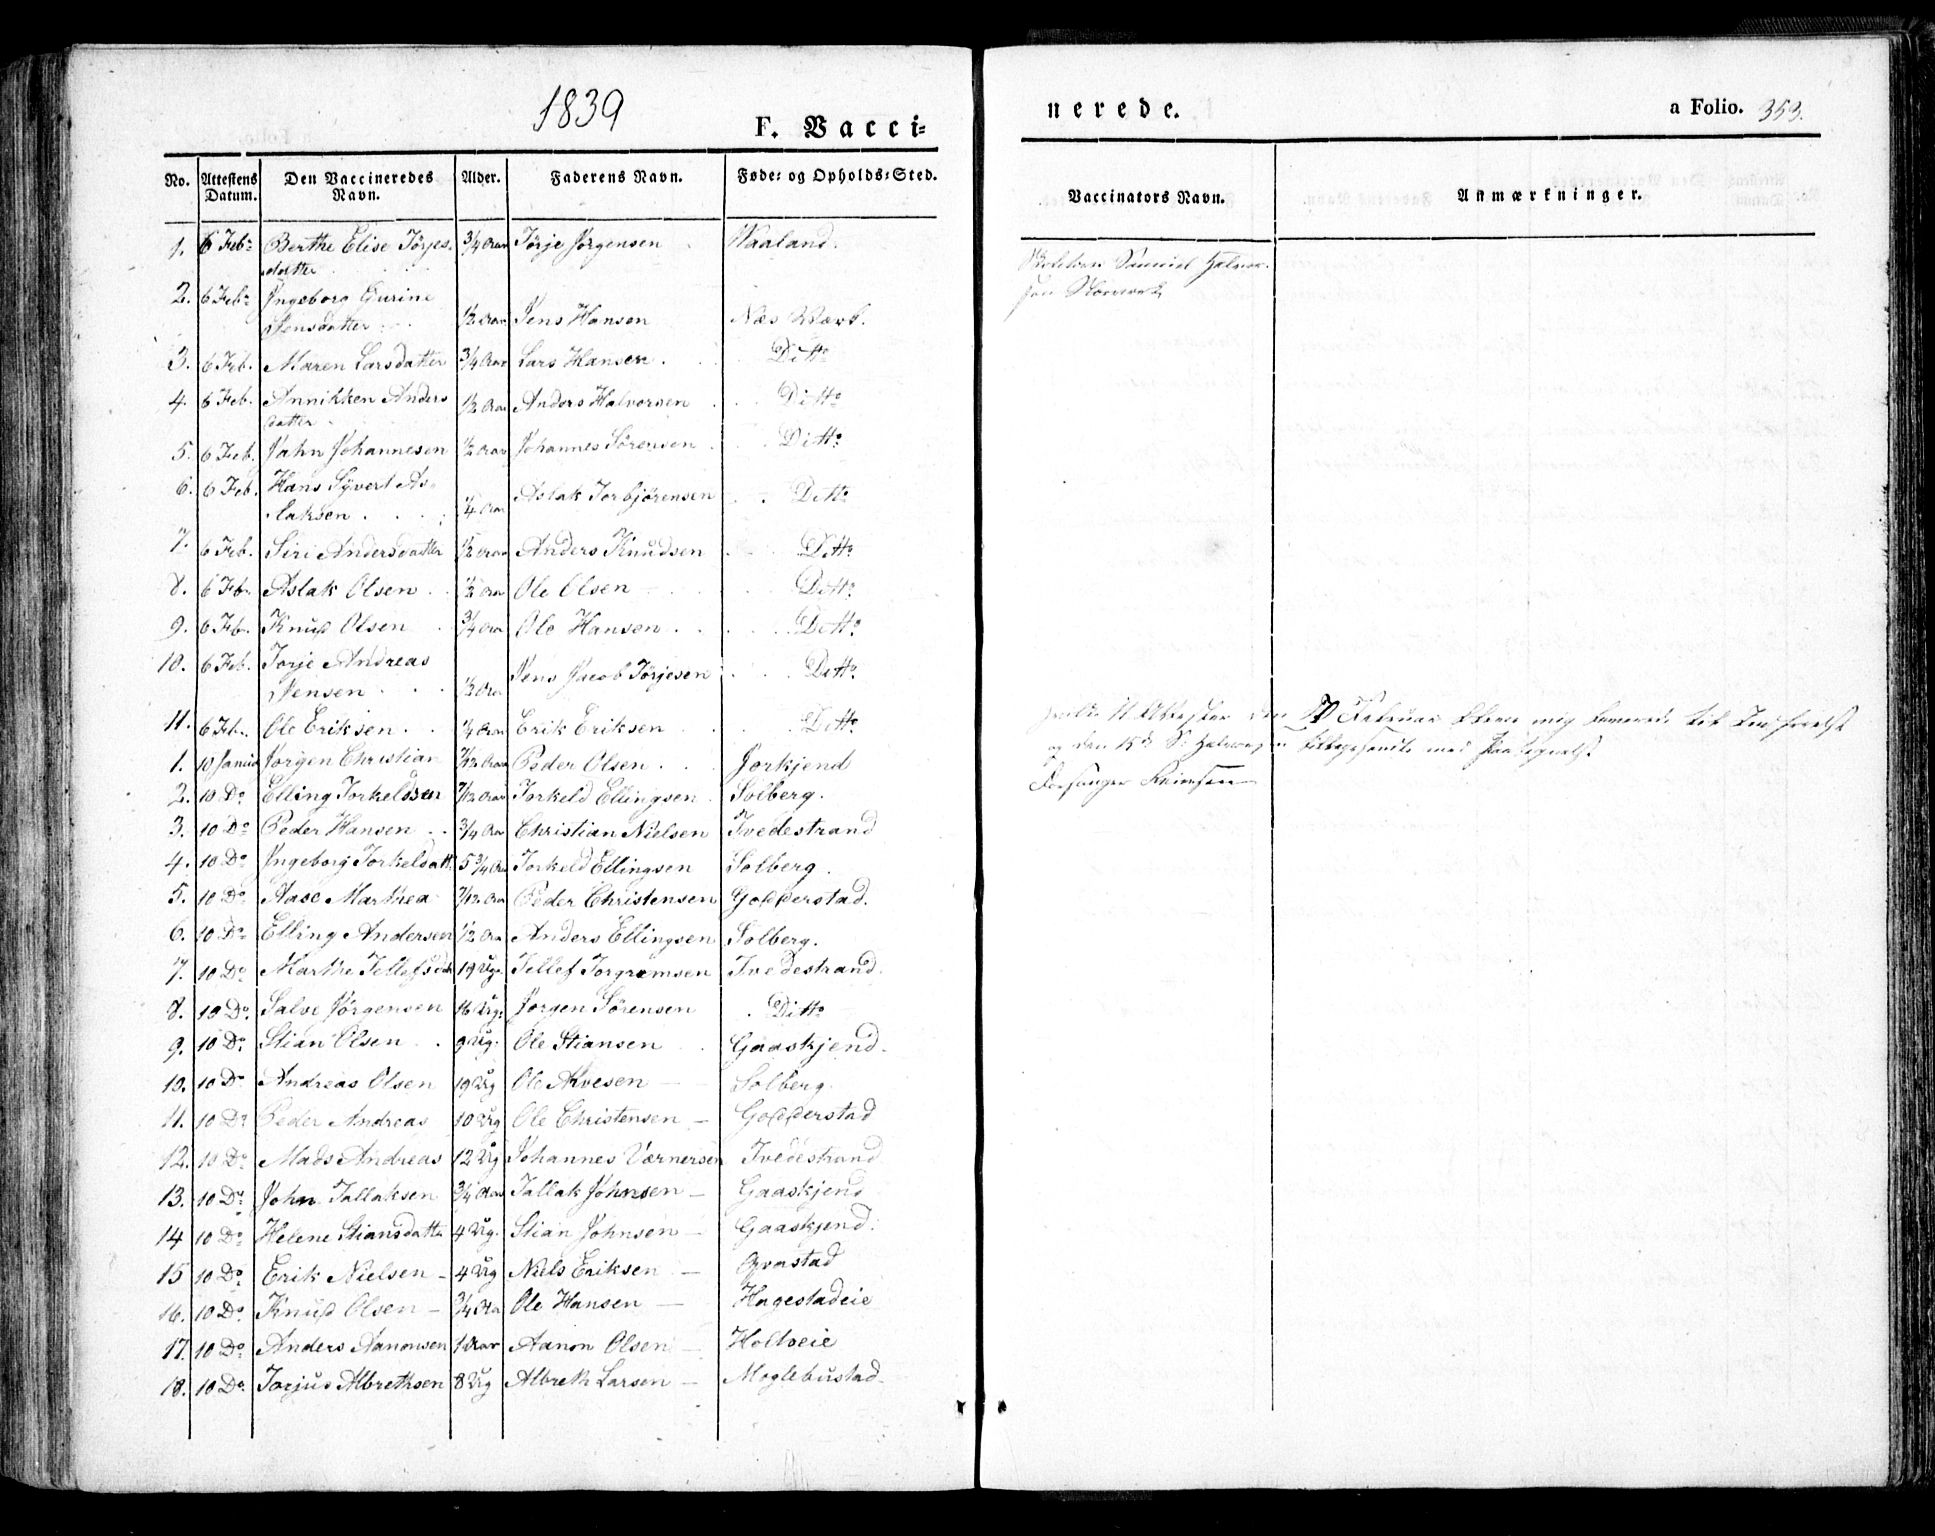 1839
F. Vacci-
nerede.
a Folio. 353.
No. Attestens Datum. Den Vaccineredes Navn. Alder. Faderens Navn. Føde- og Opholds-Sted.
Vaccinators Navn. Anmærkninger.
1. 6 Feb. Berthe Elise Tørjes- 3/4 Aar Tørje Jørgensen Waaland.
datter
2. 6 Feb. Ingeborg Gurine
Jensdatter 1/2 Aar Jens Hansen Næs Værk.
3. 6 Feb. Maren Larsdatter 3/4 Aar Lars Hansen. Ditto
4. 6 Feb. Annikken Anders 1/2 Aar Anders Halvorsen Ditto
datter
5. 6 Feb. Jahn Johannesen 1/2 Aar Johannes Sørensen Ditto
6. 6 Feb. Hans Syvert As-
laksen 1/4 Aar Aslak Torbjørensen Ditto
7. 6 Feb. Siri Andersdatter 1/2 Aar Anders Knudsen Ditto
8. 6 Feb. Aslak Olsen 1/2 Aar Ole Olsen Ditto
9. 6 Feb. Knud Olsen 3/4 Aar Ole Hansen Ditto
10. 6 Feb. Torje Andreas
Jensen 1/2 Aar Jens Jacob Tørjesen Ditto
11. 6 Feb. Ole Eriksen 1/4 Aar Erik Eriksen Ditto
1. 10 Jørgen Christian 7/12 Aar Peder Olsen Jorkjend
2. 10 Do Elling Torkeldsen 7/12 Aar Torkeld Ellingsen Solberg.
3. 10 Do Peder Hansen 3/4 Aar Christian Nielsen Tvedestrand
4. 10 Do Ingeborg Torkelsdatt 5 3/4 Aar Torkeld Ellingsen Solberg.
5. 10 Do Aase Marthea 7/12 Aar Peder Christensen Godderstad.
6. 10 Do Elling Andersen 1/2 Aar Anders Ellingsen Solberg.
7. 10 Do Marthe Tellefsdat 19 Ug. Tellef Torgremsen Tvedestrand.
8. 10 Do. Salve Jørgensen 16 Ug. Jørgen Sørensen Ditto
9. 10 Do Stian Olsen 9 Ug. Ole Stiansen Gaaskjend.
10. 10 Do Andreas Olsen 19 Ug Ole Alvesen Solberg.
11. 10 Do Peder Andreas 10 Ug Ole Christensen Godderstad
12. 10 Do Mads Andreas 12 Ug Johannes Værnersen Tvedestrand
13. 10 Do. John Tallaksen 3/4 Aar Tallak Johnsen Gaaskjend
14 10 Do Helene Stiansdatte 4 Ug. Stian Johnsen Gaaskjend.
15 10 Do. Erik Nielsen 4 Ug Niels Eriksen
16. 10 Do. Knud Olsen 3/4 Aa Ole Hansen Hagestadeie
17. 10 Do. Anders Aanonsen 1 Aar Aanon Olsen Holtveie
18. 10 Do. Torjus Albrethsen 8 Ug Albreth Larsen Moglebustad
Samuel Halvor-
sen
11 Attester den Februar
og den 15de S: